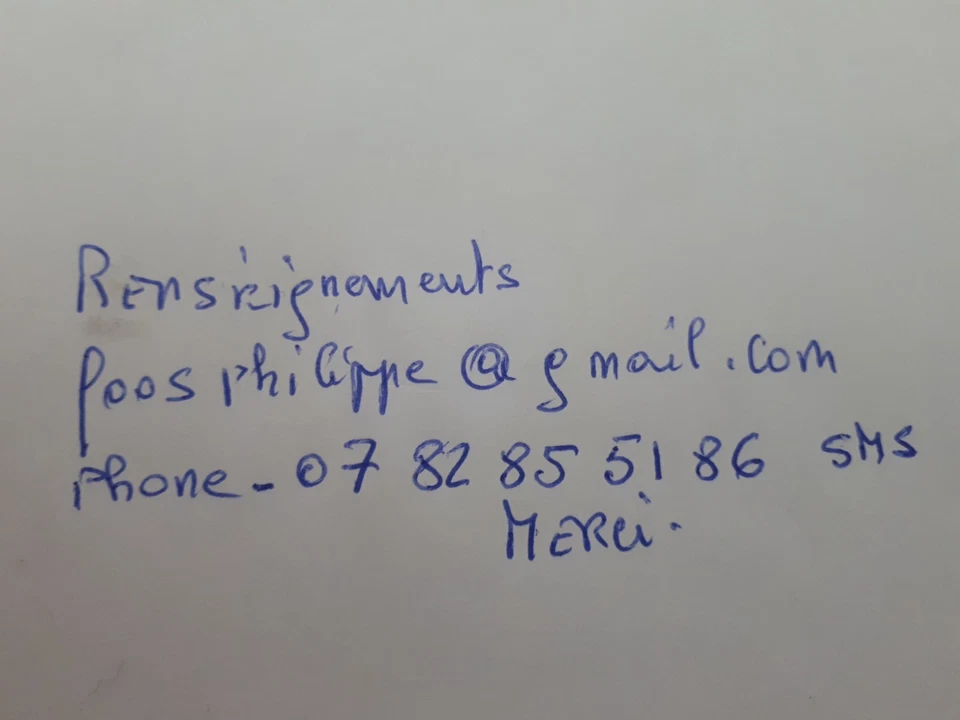 Renseignements
poosphilippe@gmail.com
phone - 07 82 85 51 86 SMS
MERCi.